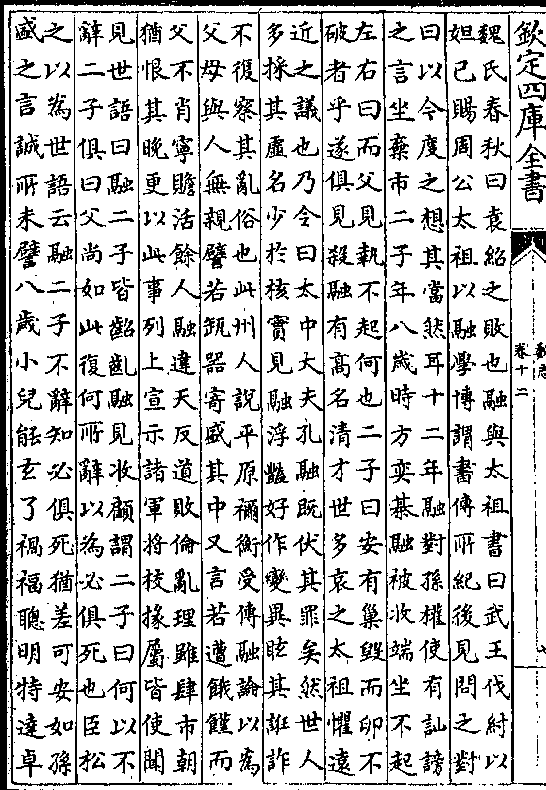 欽定四庫全書
魏志
卷十二
魏氏春秋曰袁紹之敗也融與太祖書曰武王伐紂以
妲己賜周公太祖以融學博謂書傳所紀後見問之對
曰以今度之想其當然耳十二年融對孫權使有訕謗
之言坐棄市二子年八歲時方奕棊融被收端坐不起
左右曰而父見執不起何也二子曰安有巢毀而卵不
破者乎遂俱見殺融有高名清才世多哀之太祖懼遠
近之議也乃令曰太中大夫孔融既伏其罪矣然世人
多採其虛名少於核實見融浮豔好作變異眩其誑詐
不復察其亂俗也此州人說平原禰衡受傳融論以為
父母與人無親譬若缻器寄盛其中又言若遭餓饉而
父不肖寧贍活餘人融違天反道敗倫亂理雖肆市朝
猶恨其晚更以此事列上宣示諸軍將校掾屬皆使聞
見世語曰融二子皆齠齔融見收顧謂二子曰何以不
辭二子俱曰父尚如此復何所辭以為必俱死也臣松
之以為世語云融二子不辭知必俱死猶差可安如孫
盛之言誠所未譬八歲小兒能玄了禍福聰明特達卓